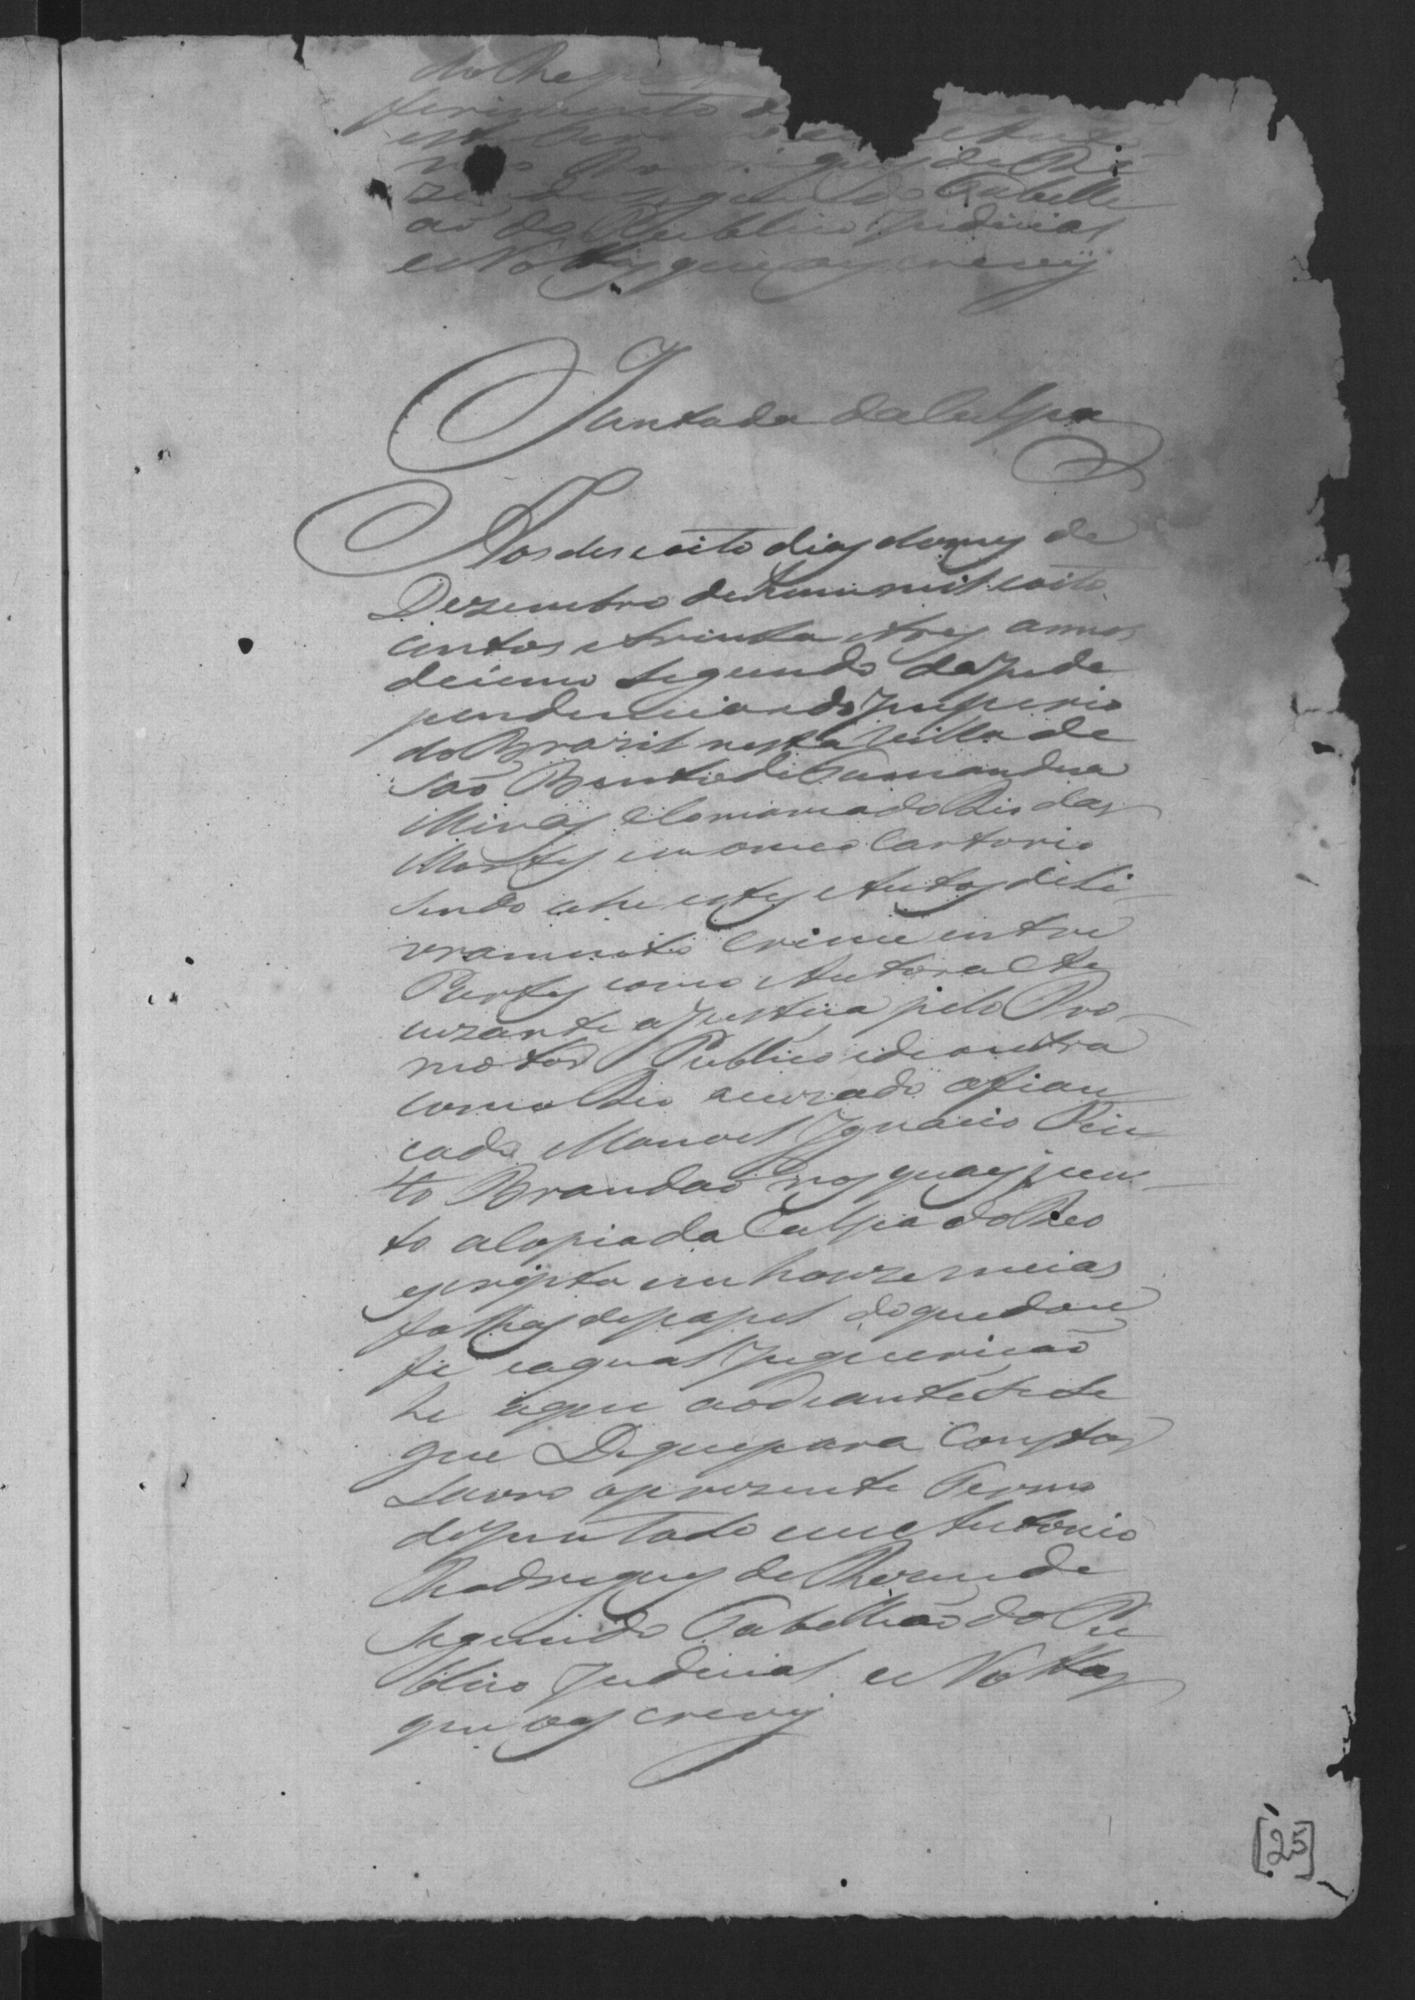 ferimento
de Re
zende segundo Tabelli
aõ do Publico Judicial
e Nottas que o escrevy
Juntada da Culpa
Aos des e oito dias do mes de
Dezembro de hum mil e oito
centos e trinta e tres annos
decimo segundo da Inde
pendencia e do Imperio
do Brazil nesta Villa de
Saõ Bento de Tamandua
Minas e Comarca do Rio das
Mortes em o meo Cartorio
sendo ahi estes Autos de Li
vramento Crime entre
Partes como Autora e Ac
cuzante a Justica pelo Pro
motor Publico e de outra
como Reo acuzado afian
cado Manoel Ignacio Pin
to Brandaõ nos quaes jun
to a Copia da Culpa do Reo
escripta em honze meias
folhas de papel do que dou
fe e a qual Inquiricaõ
he a que ao diante se se
gue De que para Constar
Lavro o presente Termo
de juntado eu Antonio
Rodrigues de Rezende
segundo Tabelliaõ do Pu
blico Judicial e Nottas
que o escrevy
[25]